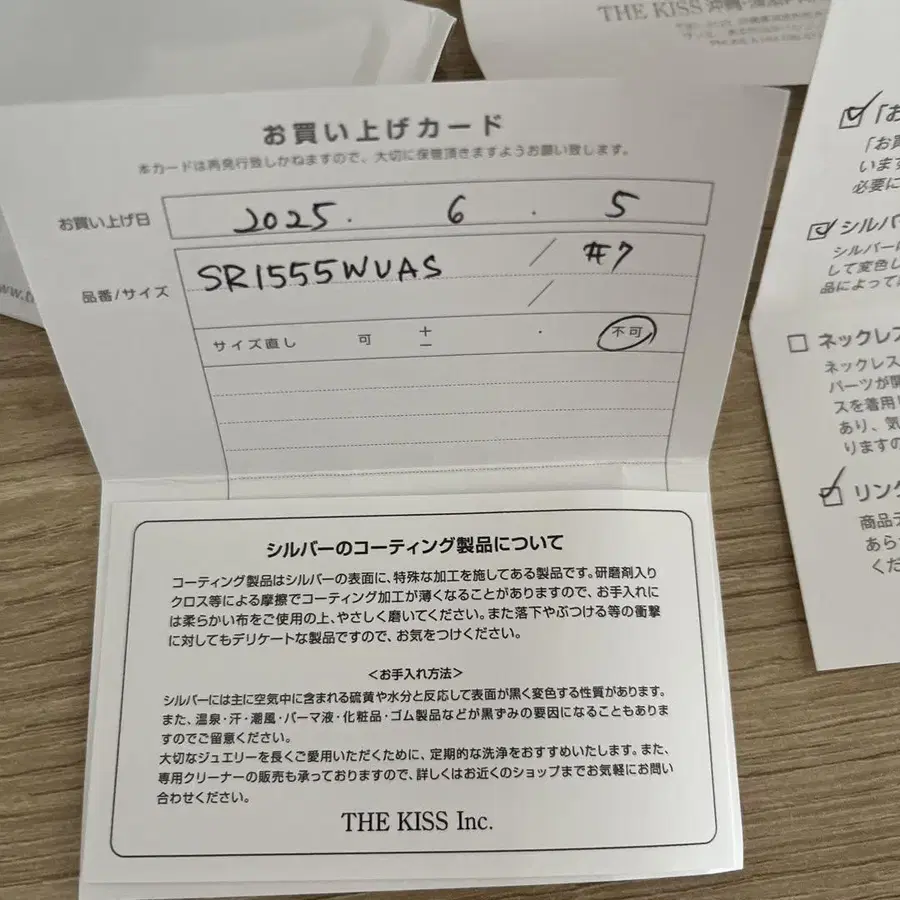 THE KISS 沖縄・
お買い上げカード
本カードは再発行致しかねますので、大切に保管頂きますようお願い致します。
お買い上げ日 2025. 6. 5
品番/サイズ SR1555WVAS / #7
/
サイズ直し 可 + − ・ 不可
シルバーのコーティング製品について
コーティング製品はシルバーの表面に、特殊な加工を施してある製品です。研磨剤入り
クロス等による摩擦でコーティング加工が薄くなることがありますので、お手入れに
は柔らかい布をご使用の上、やさしく磨いてください。また落下やぶつける等の衝撃
に対してもデリケートな製品ですので、お気をつけください。
<お手入れ方法>
シルバーには主に空気中に含まれる硫黄や水分と反応して表面が黒く変色する性質があります。
また、温泉・汗・潮風・パーマ液・化粧品・ゴム製品などが黒ずみの要因になることもありま
すのでご留意ください。
大切なジュエリーを長くご愛用いただくために、定期的な洗浄をおすすめいたします。また、
専用クリーナーの販売も承っておりますので、詳しくはお近くのショップまでお気軽にお問い
合わせください。
THE KISS Inc.
「お
「お買
います
必要に
シルバ
シルバー
して変色し
品によって
ネックレス
ネックレス
パーツが開
スを着用
あり、気
りますの
リング
商品デ
あらか
くだ